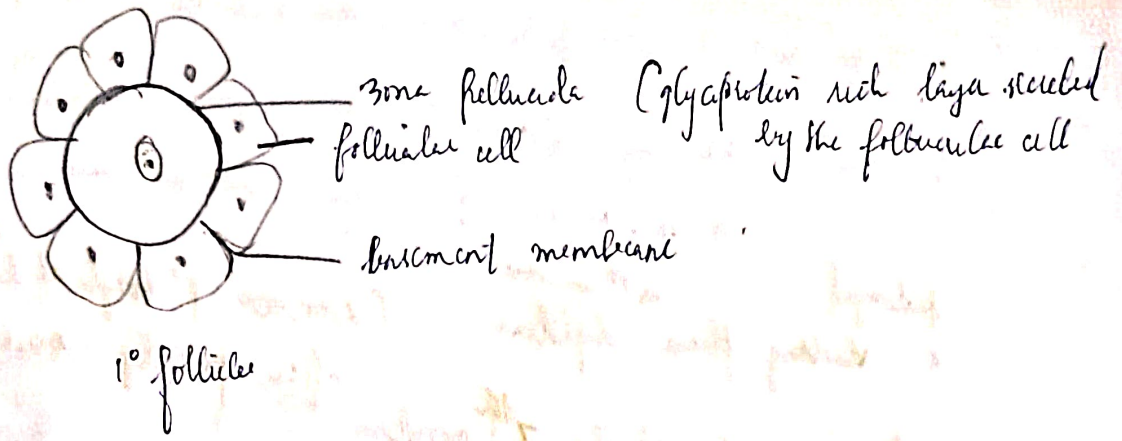 zona pellucida (glycoprotein rich layer secreted
by the follicular cell
follicular cell
basement membrane
1° follicle